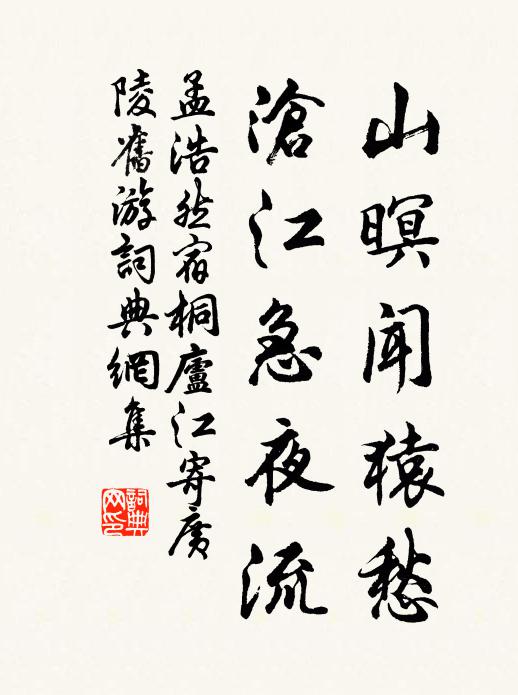 山暝聞猿愁
滄江急夜流
孟浩然宿桐廬江寄廣
陵舊游詞典網集
詞典
网印